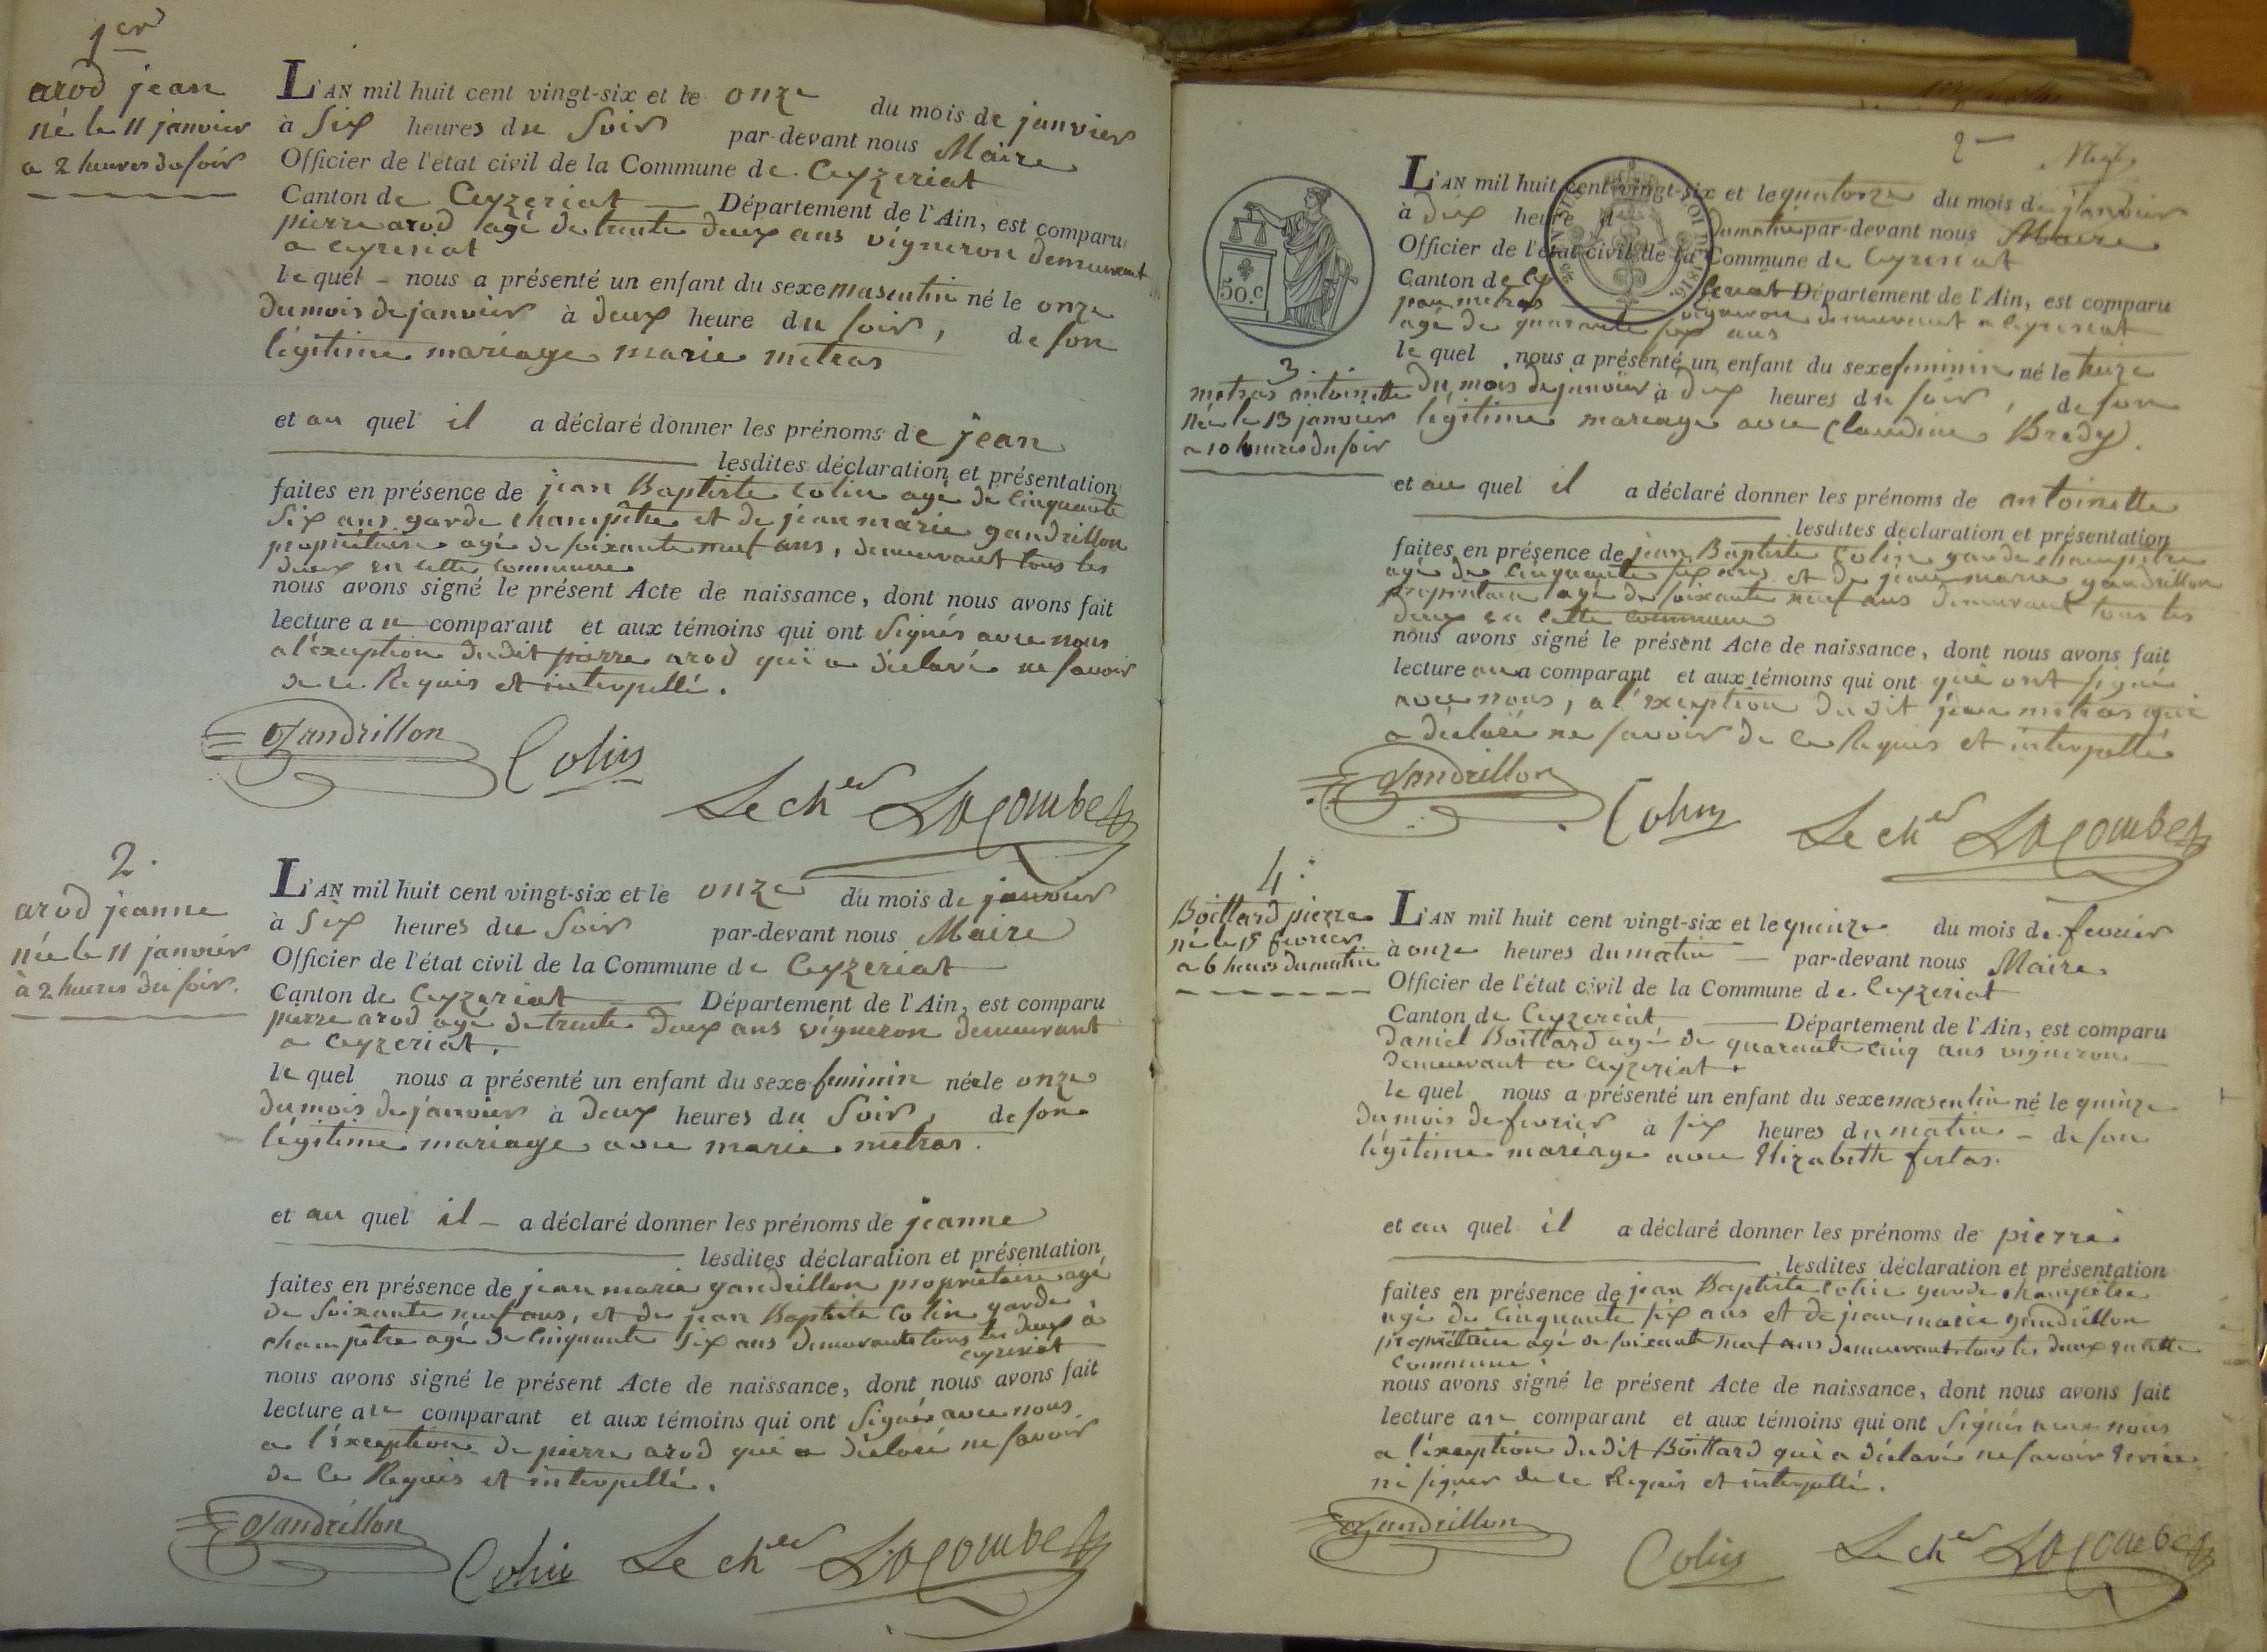 1er
arod jean
né le 11 janvier
a 2 heures du soir
L'AN mil huit cent vingt-six et le onze du mois de janvier
à six heures du soir par-devant nous Maire
Officier de l'état civil de la Commune de Ceyzeriat
Canton de Ceyzeriat Département de l'Ain, est comparu
pierre arod agé de trente deux ans vigneron demeurant
a ceyzeriat
le quel nous a présenté un enfant du sexe masculin né le onze
du mois de janvier à deux heure du soir, de son
légitime mariage marie metras
et au quel il a déclaré donner les prénoms de jean
lesdites déclaration et présentation
faites en présence de jean Baptiste Colin agé de cinquante
six ans garde champêtre et de jean marie gandrillon
propriétaire agé de soixante neuf ans, demeurant tous les
deux en cette commune
nous avons signé le présent Acte de naissance, dont nous avons fait
lecture au comparant et aux témoins qui ont signés avec nous
a l'éxception dudit pierre arod qui a déclaré ne savoir
de ce Requis et interpellé.
Gandrillon
Colin
Le cher Lacombe
2.
arod jeanne
née le 11 janvier
à 2 heures du soir.
L'AN mil huit cent vingt-six et le onze du mois de janvier
à six heures du soir par-devant nous Maire
Officier de l'état civil de la Commune de Ceyzeriat
Canton de Ceyzeriat Département de l'Ain, est comparu
pierre arod agé de trente deux ans vigneron demeurant
a ceyzeriat.
le quel nous a présenté un enfant du sexe feminin née le onze
du mois de janvier à deux heures du soir, de son
légitime mariage avec marie metras.
et au quel il a déclaré donner les prénoms de jeanne
lesdites déclaration et présentation
faites en présence de jean marie gandrillon propriétaire agé
de soixante neuf ans, et de jean Baptiste Colin garde
champêtre agé de cinquante six ans demeurants tous les deux à
ceyzeriat
nous avons signé le présent Acte de naissance, dont nous avons fait
lecture au comparant et aux témoins qui ont signés avec nous
a l'éxception de pierre arod qui a déclaré ne savoir
de ce Requis et interpellé.
Gandrillon
Colin
Le cher Lacombe
2
50.c
3.
metras antoinette
née le 13 janvier
a 10 heures du soir
L'AN mil huit cent vingt-six et le quatorze du mois de janvier
à dix heure du matin par-devant nous Maire
Officier de l'état civil de la Commune de Ceyzeriat
Canton de Ceyzeriat Département de l'Ain, est comparu
jean metras vigneron demeurant a ceyzeriat
agé de quarante six ans
le quel nous a présenté un enfant du sexe feminin né le treize
du mois de janvier à dix heures du soir, de son
légitime mariage avec Claudine Bredy.
et au quel il a déclaré donner les prénoms de antoinette
lesdites déclaration et présentation
faites en présence de jean Baptiste Colin garde champêtre
agé de cinquante six ans et de jean marie gandrillon
propriétaire agé de soixante neuf ans demeurant tous les
deux en cette commune
nous avons signé le présent Acte de naissance, dont nous avons fait
lecture au comparant et aux témoins qui ont qui ont signé
avec nous, a l'exception dudit jean metras qui
a déclaré ne savoir de ce Requis et interpellé
Gandrillon
Colin
Le cher Lacombe
4.
Boittard pierre
né le 15 fevrier
a 6 heures du matin
L'AN mil huit cent vingt-six et le quinze du mois de fevrier
à onze heures du matin par-devant nous Maire
Officier de l'état civil de la Commune de Ceyzeriat
Canton de Ceyzeriat Département de l'Ain, est comparu
Daniel Boittard agé de quarante cinq ans vigneron
demeurant a ceyzeriat.
le quel nous a présenté un enfant du sexe masculin né le quinze
du mois de fevrier à six heures du matin de son
légitime mariage avec Elizabeth
et au quel il a déclaré donner les prénoms de pierre
lesdites déclaration et présentation
faites en présence de jean Baptiste Colin garde champêtre
agé de cinquante six ans et de jean marie gandrillon
propriétaire agé de soixante neuf ans demeurant tous les deux en cette
commune.
nous avons signé le présent Acte de naissance, dont nous avons fait
lecture au comparant et aux témoins qui ont signés avec nous
a l'éxception dudit Boittard qui a déclaré ne savoir
ni signer de ce Requis et interpellé.
Gandrillon
Colin
Le cher Lacombe